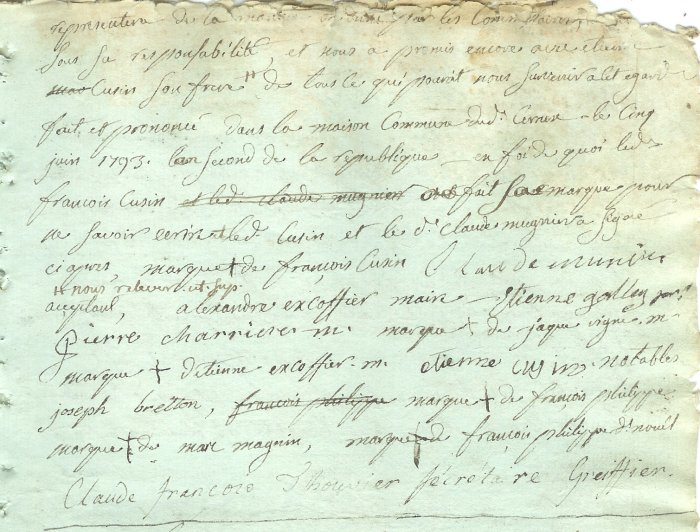 representera de la
sous sa responsabilité, et nous a promis encore avec etienne
Cusin son frere de tous ce qui pourait nous survenir a cet egard
fait et prononcé dans la maison Commune dud. Cernex le Cinq
juin 1793. l'an second de la republique en foi de quoi led.
françois Cusin et led. claude mugnier ont fait sa marque pour
ne savoir ecrire led. Cusin et le d. Claude mugnier a signé
ci apres, marque + de françois Cusin Claude munier
nous relever et
acceptant, alexandre excoffier maire etienne
Pierre charriere m. marque + de jaque vigne m.
marque + d'etienne excoffier m. etienne cusin notables
joseph bretton, francois philippe marque + de françois philippe
marque + de marc magnin, marque + de françois philippe
Claude françois Thouvier Sécrétaire Greiffier.